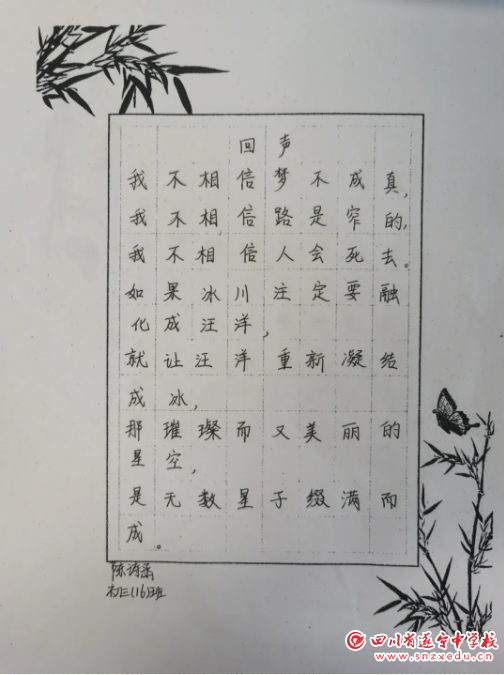 回声
我不相信梦不成真,
我不相信路是窄的,
我不相信人会死去。
如果冰川注定要融
化成汪洋,
就让汪洋重新凝结
成冰,
那璀璨而又美丽的
星空,
是无数星于缀满而
成。
陈诗函
初三(16)班
四川省遂宁中学校
www.snzxedu.cn